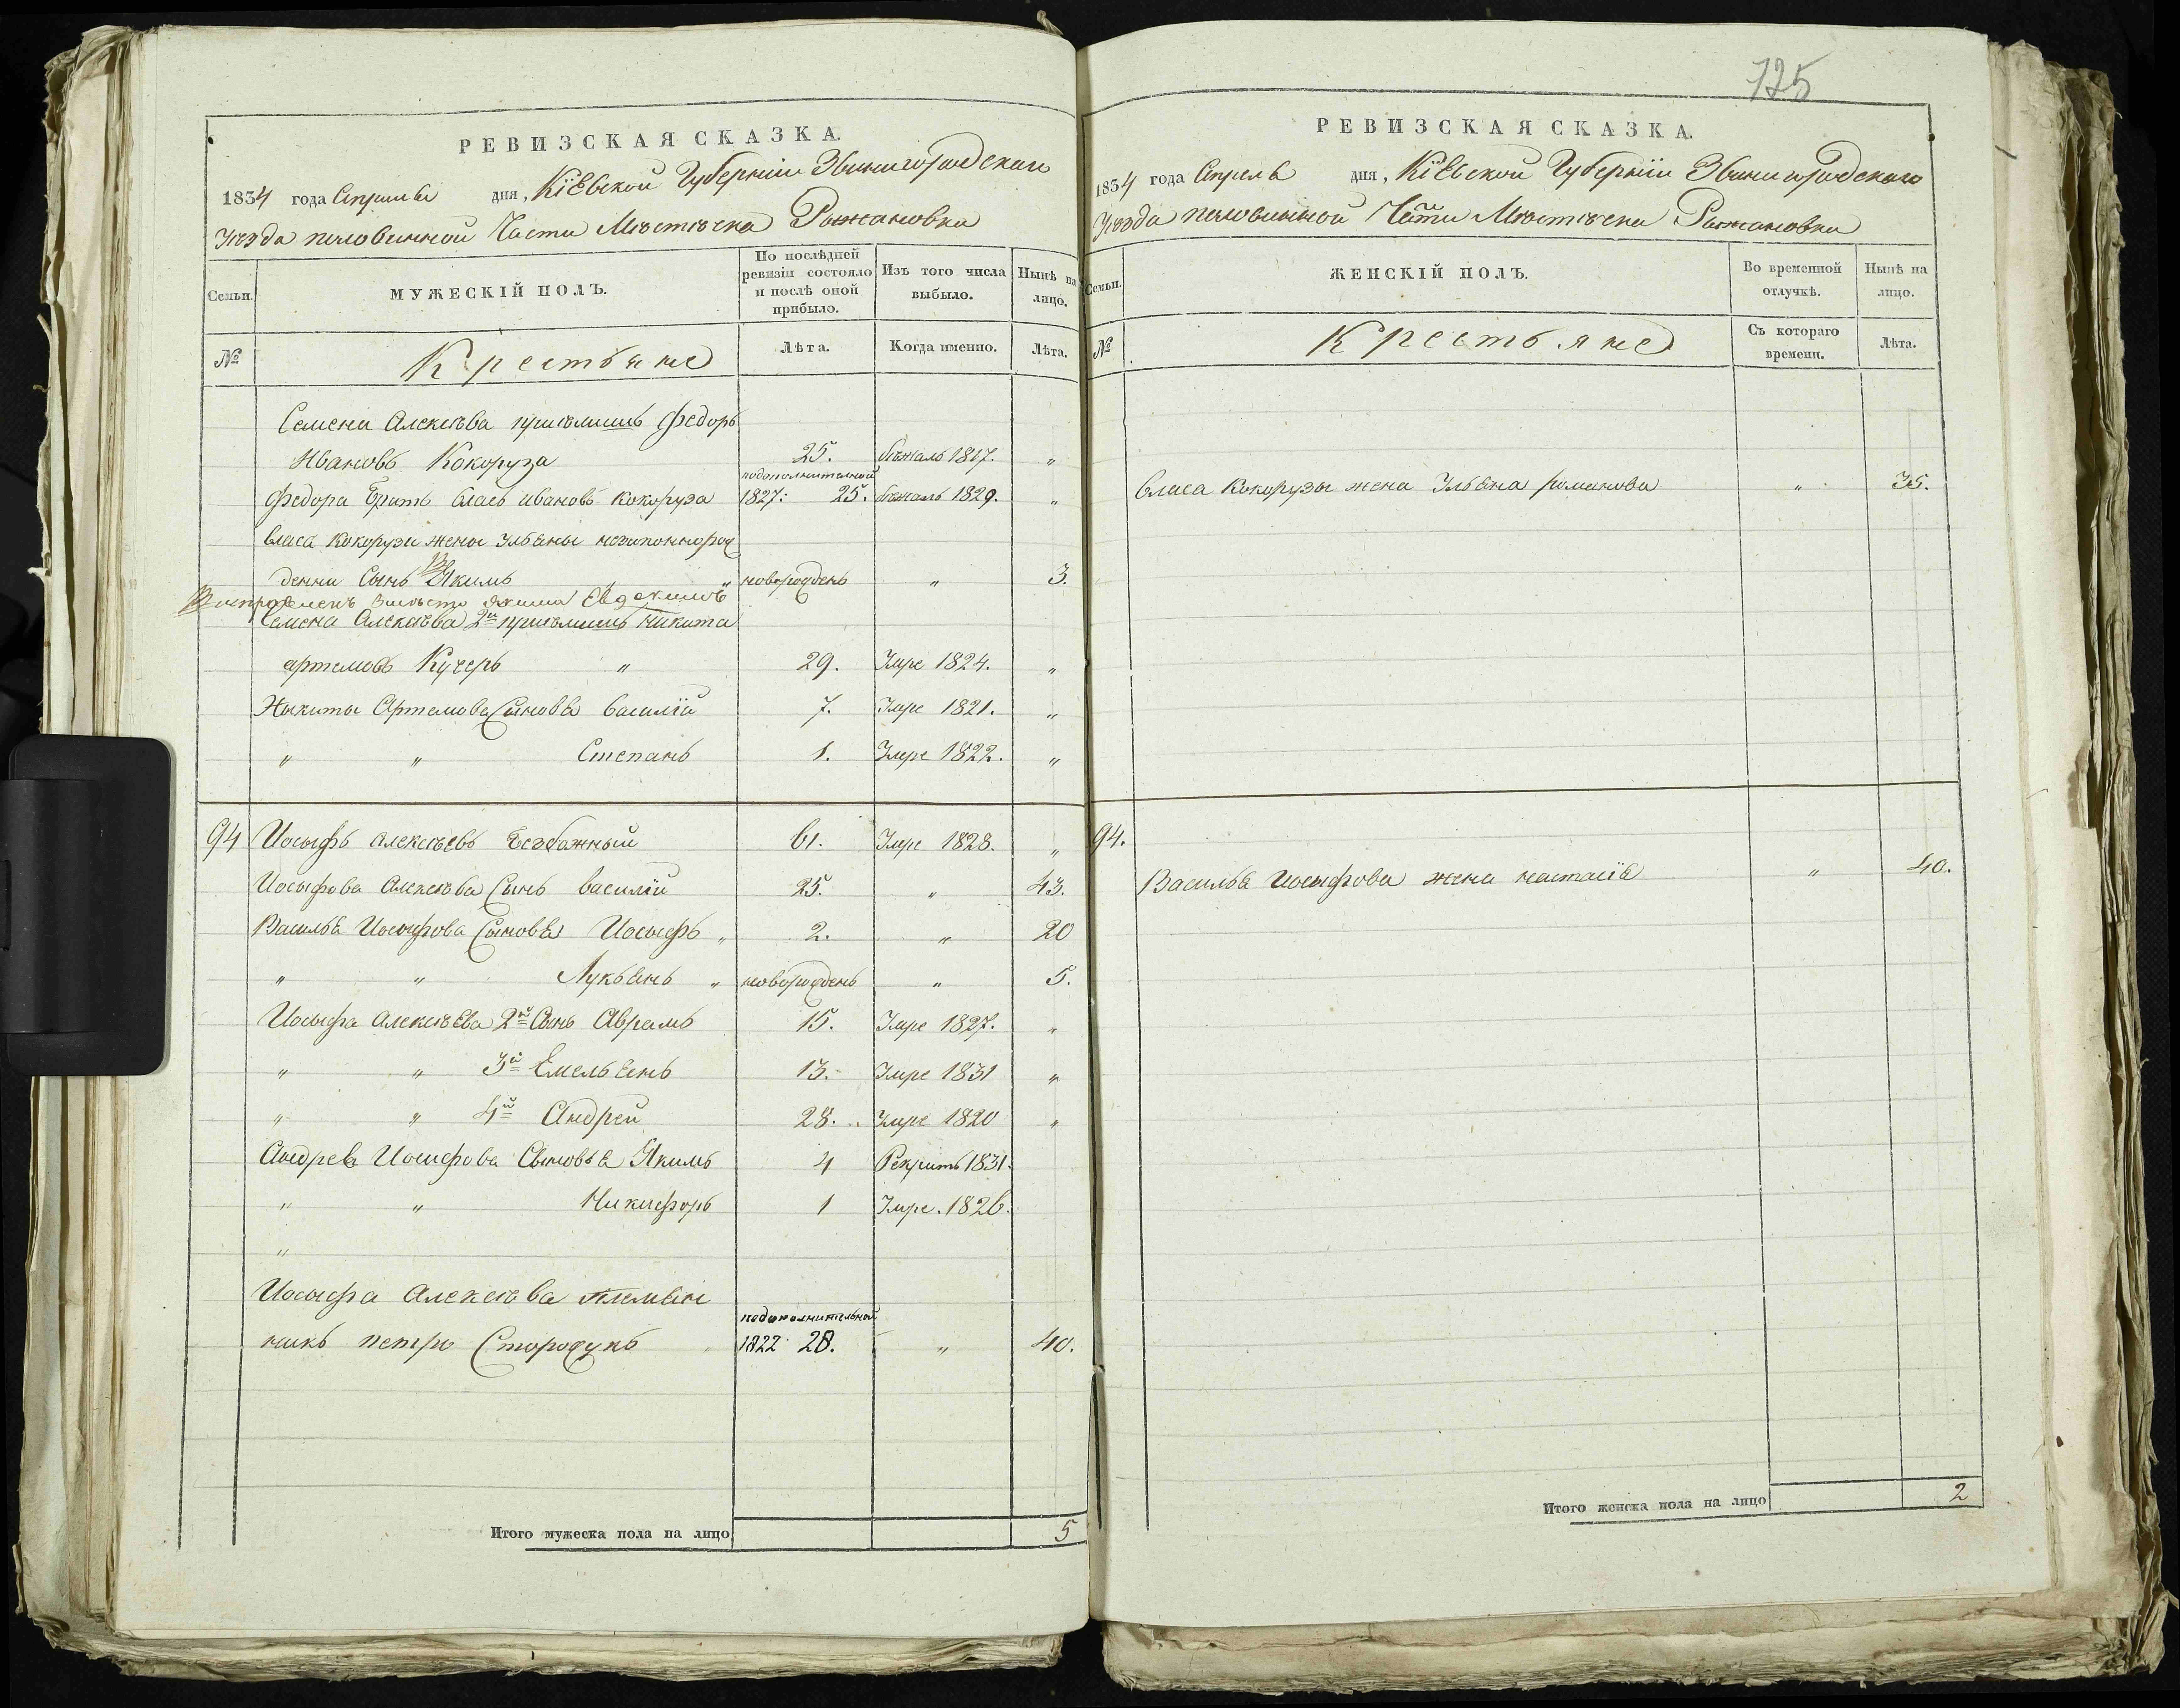 РЕВИЗСКАЯ СКАЗКА.
1834 года Апрѣля дня, Кіевской Губерніи Звинигородскаго
Уѣзда половинной Части Мѣстѣчка Рыжановки
Семьи.
МУЖЕСКІЙ ПОЛЪ.
По послѣдней ревизіи состояло и послѣ оной прибыло.
Изъ того числа выбыло.
Нынѣ на лицо.
№
Крестьяне
Лѣта.
Когда именно.
Лѣта.
Семена Алексѣва приймишъ Федоръ
Ивановъ Кокоруза 25. бѣжалъ 1817. "
подополнителной
Федора братъ власъ ивановъ кокоруза 1827: 25. бѣжалъ 1829. "
власа кокорузи жены Ульяны незаконнорож
денни Сынъ Якимъ " " новорожденъ " 3.
вмѣсто якима Евдокимъ
Семена Алексѣва 2й приймишъ Никита
артемовъ Кучеръ " 29. Умре 1824. "
Никиты Артемова Сыновья василій 7. Умре 1821. "
" " Степанъ 1. Умре 1822. "
94 Иосыфъ алексѣевъ безбажный 61. Умре 1828. "
Иосыфова Алексѣва Сынъ василій 25. " 43.
Василья Иосыфова Сыновья Иосыфъ " 2. " 20
" " Лукьянъ " новорожденъ " 5.
Иосыфа Алексѣева 2й Сынъ Аврамъ 15. Умре 1827. "
" " 3й Емельянъ 13. Умре 1831 "
" " 4й Андрей 28. Умре 1820 "
Андрея Иосифова Сыновья Якимъ 4 Рекрутъ 1831.
" " Никифоръ 1 Умре. 1826.
"
Иосыфа Алексѣва племян
подополнительной
никъ петро Сторожукъ 1822 28. " 40.
Итого мужеска пола на лицо 5
725
РЕВИЗСКАЯ СКАЗКА.
1834 года Апреля дня, Кіевской Губерніи Звинигородскаго
Уѣзда половинной Части Мѣстѣчка Рыжановки
Семьи.
ЖЕНСКІЙ ПОЛЪ.
Во временной отлучкѣ.
Нынѣ на лицо.
№
Крестьяне
Съ котораго времени.
Лѣта.
власа Кокорузы жена Ульяна романова " 35.
94.
Василья Иосыфова жена настасія " 40.
Итого женска пола на лицо 2